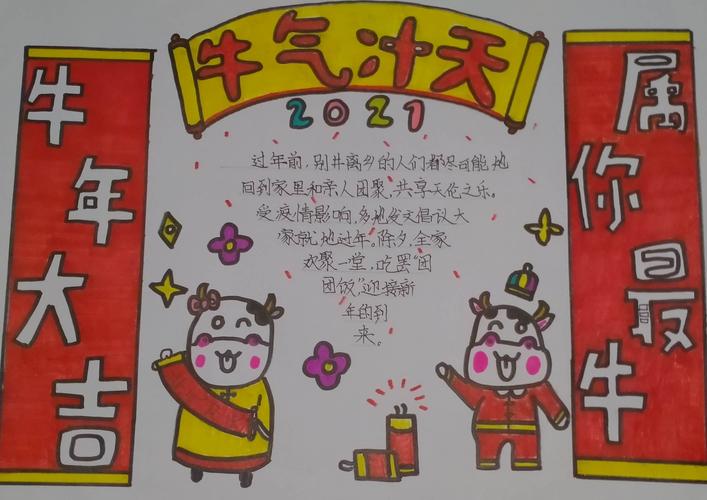 牛气冲天
2021
牛年大吉
属你最牛
过年前,别井离乡的人们都尽可能地
回到家里和亲人团聚,共享天伦之乐。
受疫情影响,多地发文倡议大
家就地过年。除夕,全家
欢聚一堂,吃罢“团
团饭”,迎接新
年的到
来。